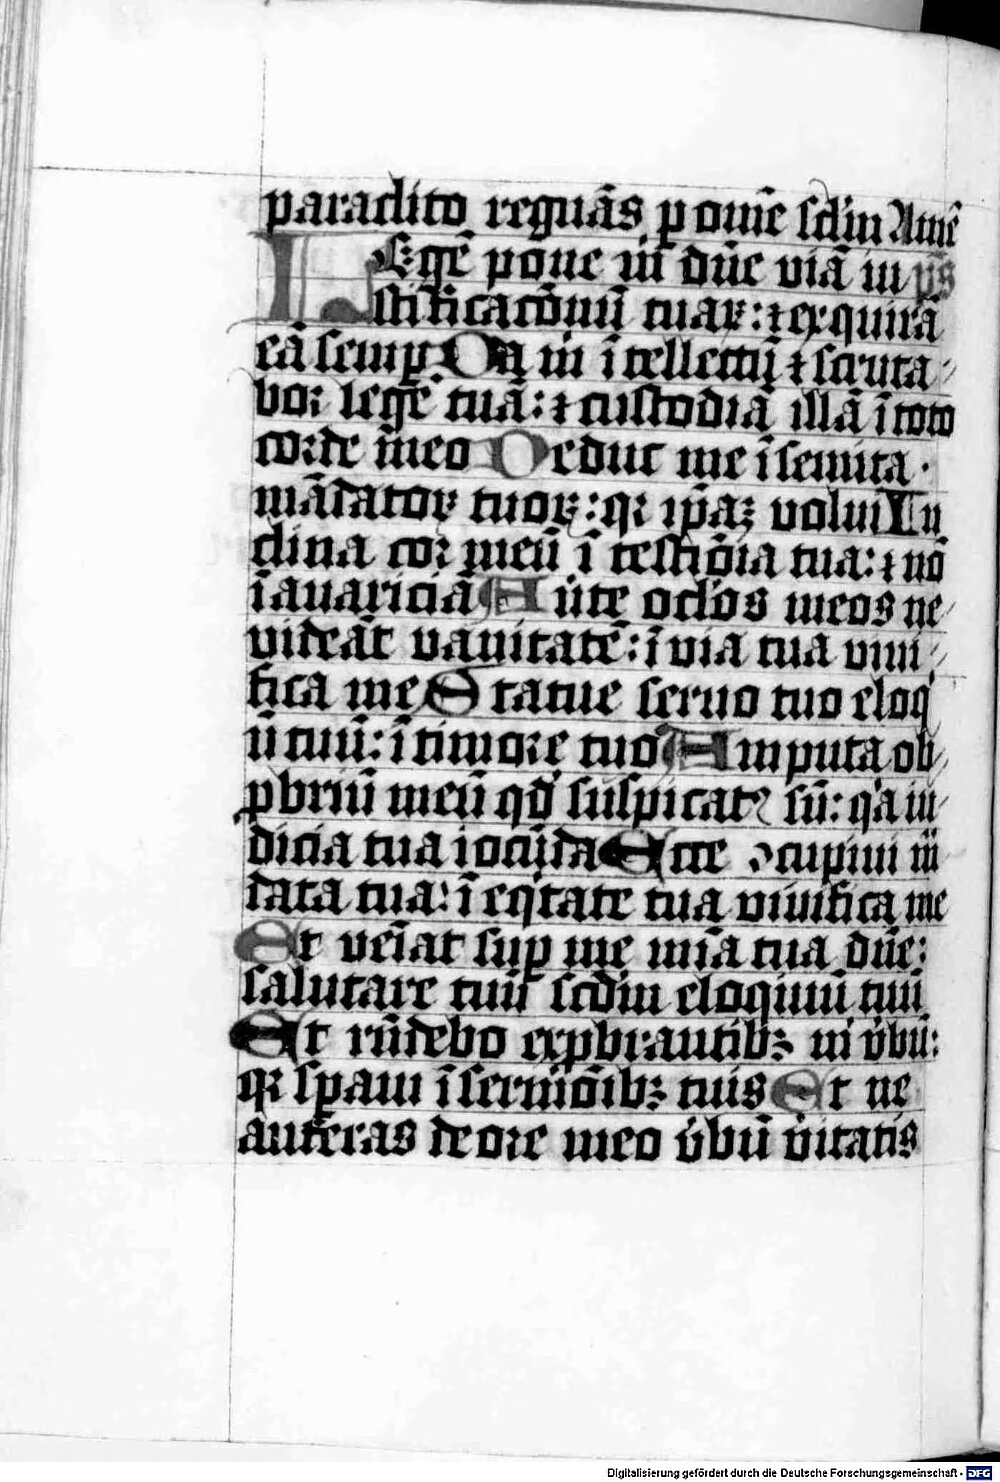 paraclito regnās ꝑ om̄e sclm̄ Amē
LEgē pone m̄ dn̄e viā iu ps̄
stificatōnū tuaꝝ: ⁊ exquirā
eā semꝑ Da m̄ ītellectū ⁊ scruta⸗
bor legē tuā: ⁊ custodiā illā ī toto
corde meo Deduc me ī semita
mādatoꝝ tuoꝝ: qꝛ ip̄aꝫ volui In
clina cor meū ī testiōia tua: ⁊ nō
ī auariciā Auͥte oclōs meos ne⸗
videāt vanitatē: ī via tua viui⸗
fica me Statue seruo tuo eloq
ū tuū: ī timore tuo Amputa ob⸗
ꝓbriū meū qd̄ suspicatꝰ sū: qͥa iu⸗
dicia tua iocūda Ecce ↄcupiui mā
data tua: ī eqͥtate tua viuifica me
Et veīat suꝑ me mīa tua dn̄e:
salutare tuū scd̄m eloquiū tuū
Et rn̄debo exꝓbrantibꝫ m̄ v̄bū:
qꝛ sꝑaui ī sermōibꝫ tuis Et ne
auferas de ore meo v̄bū v̄itatis
Digitalisierung gefördert durch die Deutsche Forschungsgemeinschaft - DFG